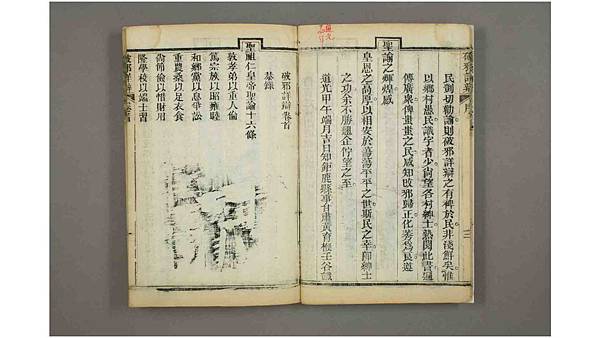 民剴切勸諭則破邪詳辯之有裨於民非淺鮮矣惟
以鄉村愚民識字者少尚望各村紳士熟閱此書遍
傳廣衆俾蚩蚩之民咸知改邪歸正化莠為良遵
聖諭之輝煌感
皇恩之高厚以相安於蕩蕩平平之世斯民之幸卽紳士
之功余不勝翹企佇望之至
道光甲午端月吉日知鉅鹿縣事甘肅黃育楩壬谷識
破邪詳辯卷首
恭錄
聖祖仁皇帝聖諭十六條
敦孝弟以重人倫
篤宗族以昭雍睦
和鄉黨以息爭訟
重農桑以足衣食
尚節儉以惜財用
隆學校以端士習